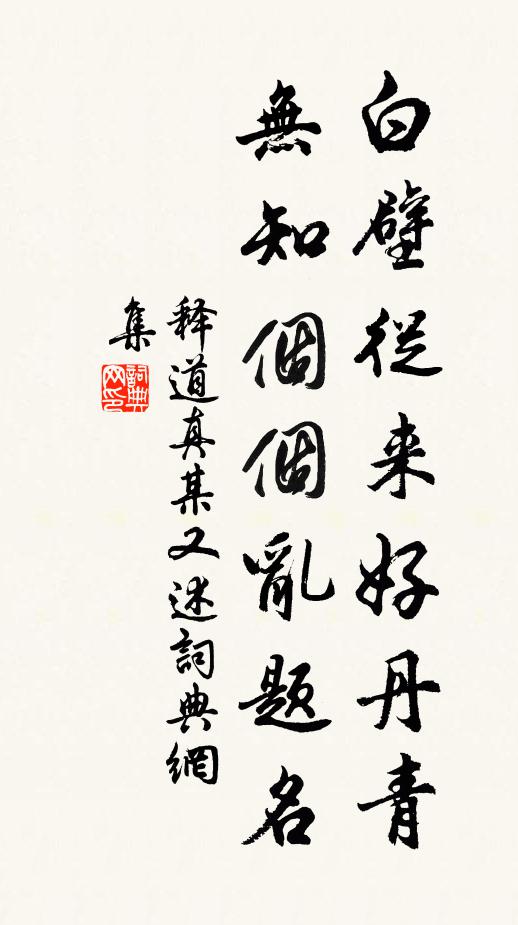 白壁從来好丹青
無知個個亂題名
释道真某又述詞典網
集
詞典
网印